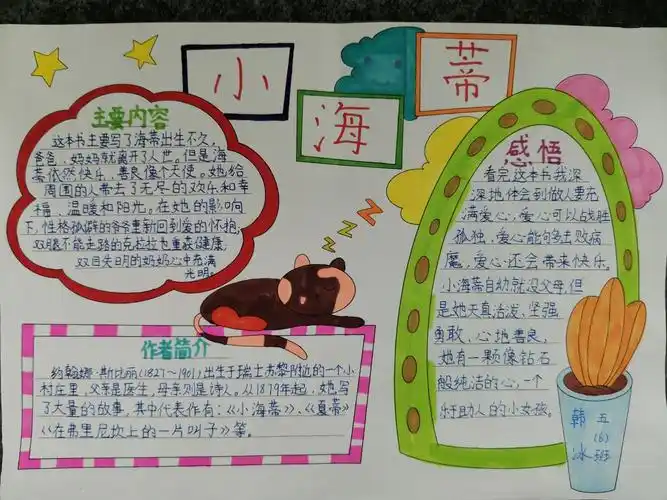 小
海
蒂
主要内容
这本书主要写了海蒂出生不久,
爸爸,妈妈就离开了人世。但是海
蒂依然快乐、善良像个天使。她给
周围的人带去了无尽的欢乐和幸
福、温暖和阳光。在她的影响
下,性格孤僻的爷爷重新回到爱的怀抱;
双腿不能走路的克拉拉也重获健康;
双目失明的奶奶心中充满
光明。
z
z
z
z
作者简介
约翰娜·斯比丽(1827~1901)出生于瑞士苏黎附近的一个小
村庄里,父亲是医生,母亲则是诗人。从1879年起,她写
了大量的故事,其中代表作有:《小海蒂》、《夏蒂》
《在弗里尼坎上的一片叫子》等。
感悟
看完这本书我深
深地体会到做人要充
满爱心,爱心可以战胜
孤独,爱心能够去败病
魔,爱心还会带来快乐。
小海蒂自幼就没父母,但
是她天真活泼,坚强
勇敢、心地善良,
她有一颗像钻石
般纯洁的心,一个
乐于助人的小女孩。
韩冰
五(6)班